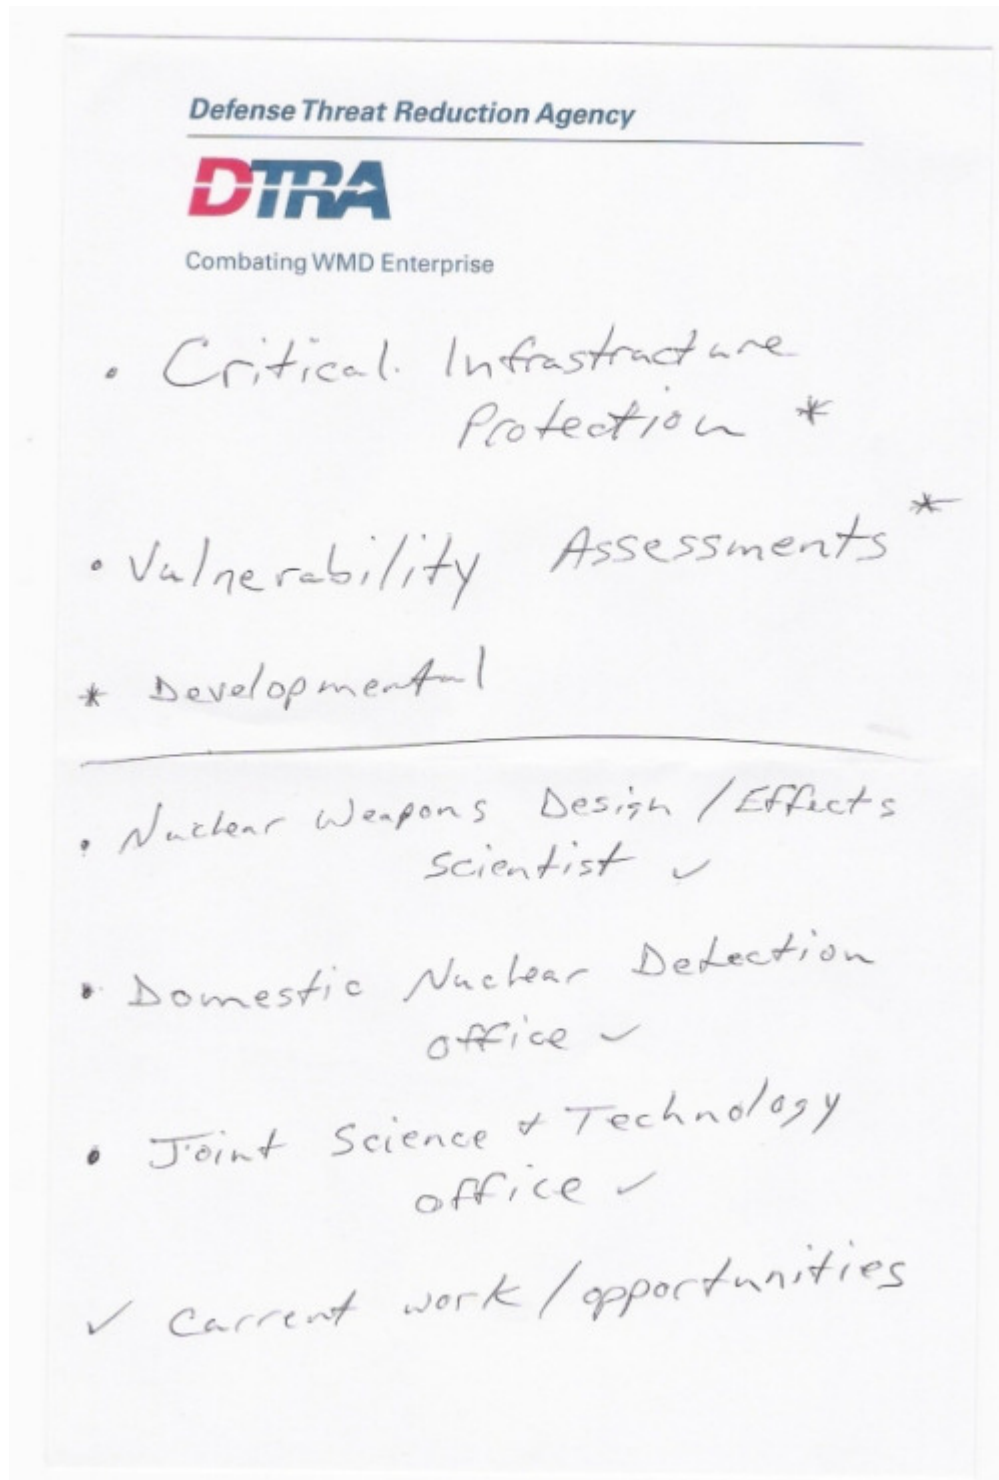 Defense Threat Reduction Agency
DTRA
Combating WMD Enterprise
• Critical Infrastructure
Protection *
• Vulnerability Assessments *
* Developmental
• Nuclear Weapons Design / Effects
Scientist ✓
• Domestic Nuclear Detection
office ✓
• Joint Science + Technology
office ✓
✓ Current work / opportunities